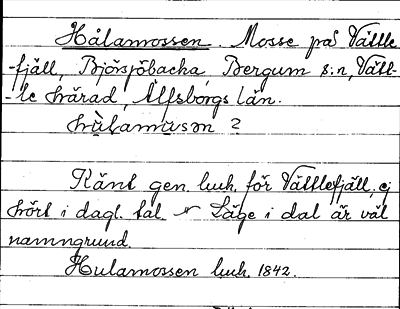 Hålamossen. Mosse på Vättle
-fjäll, Björsjöbacka, Bergum s:n, Vätt-
-le härad, Älfsborgs län.
hùlamùsən ?
Känt gen. luh. för Vättlefjäll, ej
hört i dagl. tal. Läge i dal är väl
namngrund.
Hulamossen luh. 1842.